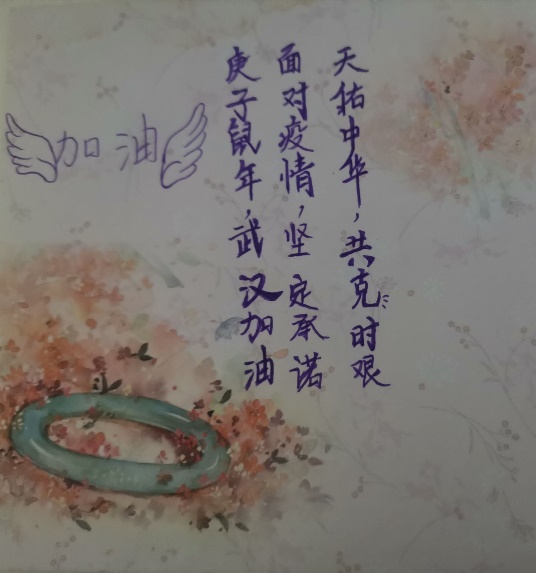 天祐中华，共克时艰
面对疫情，坚定承诺
庚子鼠年，武汉加油
加油